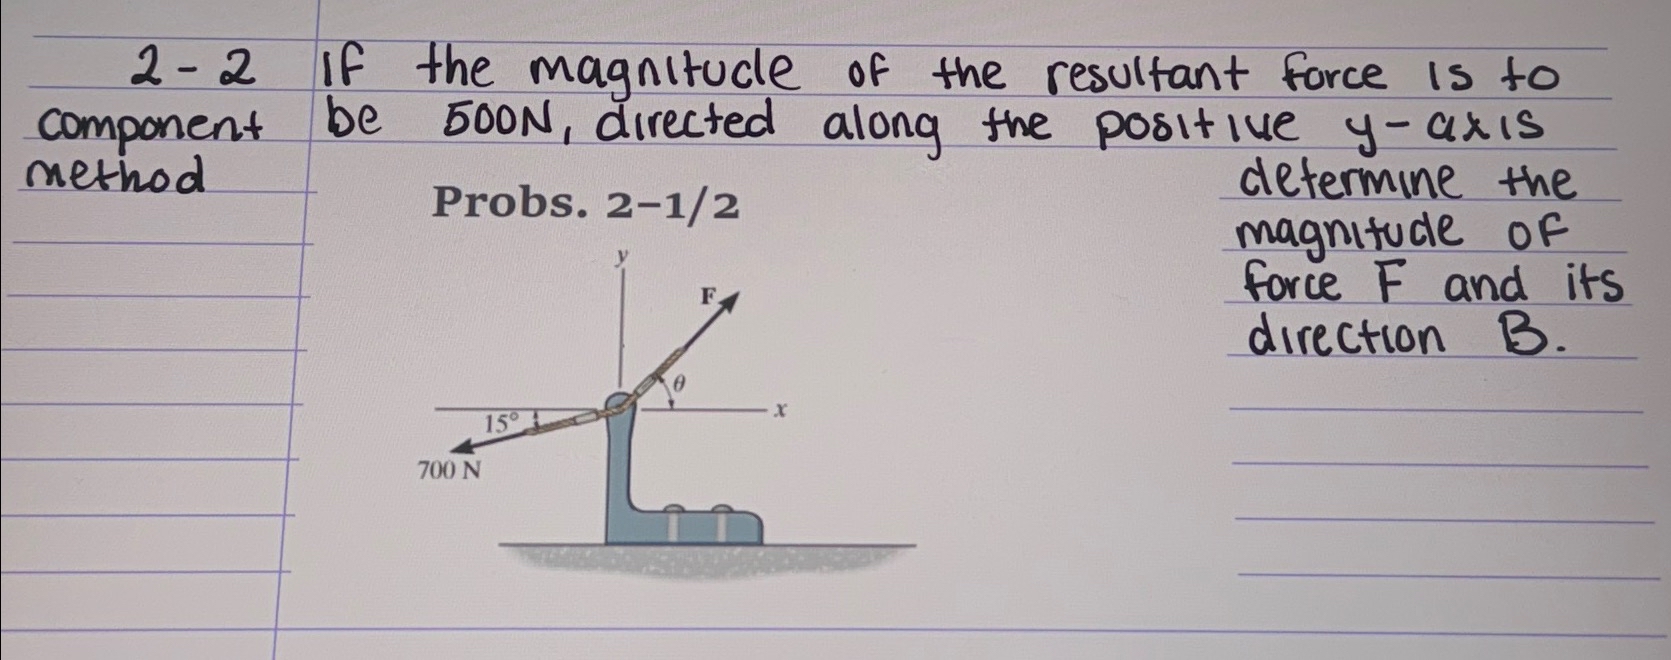 2-2 If the magnitude of the resultant force is to
component be 500N, directed along the positive y-axis
method determine the
Probs. 2-1/2
magnitude of
force F and its
direction B.
y
F
θ
x
15°
700 N